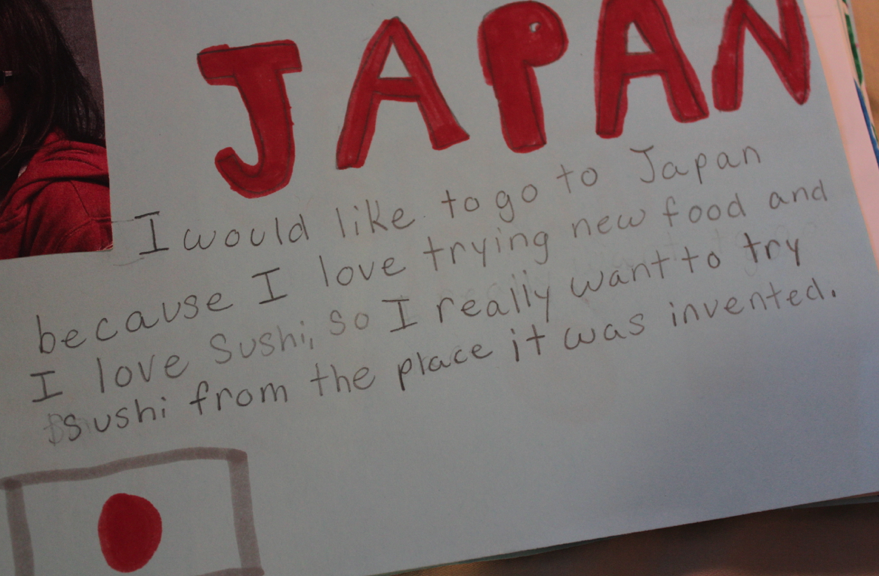 JAPAN
I would like to go to Japan
because I love trying new food and
I love Sushi, so I really want to try
sushi from the place it was invented.